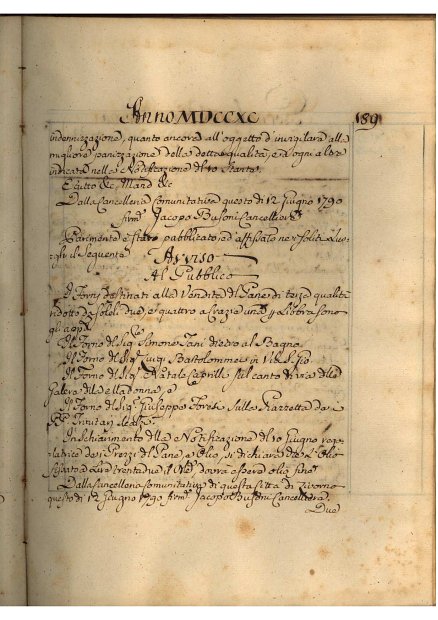 Anno MDCCXC 189
indennizzazione, quanto ancora all'oggetto d'invigilare alla
migliore panizzazione della detta qualità, ed ogni altro
indicata nella Notificazione del 10 stante.
Editto &c. Mand. &c.
Dalla Cancelleria Comunitativa questo dì 12 Giugno 1790
firm.º Jacopo Busoni Cancelliere
Parimente è stato pubblicato ed affissato ne' soliti Luo-
ghi il seguente
Avviso
Al Pubblico
I Forni destinati alla Vendita del Pane di terza qualità
ridotto da soldi due, e quattro a Crazie una la Libbra sono
gli app.
Il Forno del Sig.re Simone Tani dietro al Bagno
Il Forno del Sig.re Luigi Bartolommei in Via S.
Il Forno del Sig. Natale Caprilli sul canto di via della
Galera della Madonna, e
Il Forno del Sig.re Giuseppe Foresi sulla Piazzetta de
PP. Trinitari
In schiarimento della Notificazione del 10 Giugno
de i Prezzi del Pane, e Olio, si dichiara che l'Olio
a Lire trentadue il dovrà essere olio fine
Dalla Cancelleria Comunitativa di questa Città di Livorno
questo dì 12 Giugno 1790 firm.º Jacopo Busoni Cancelliere
Due